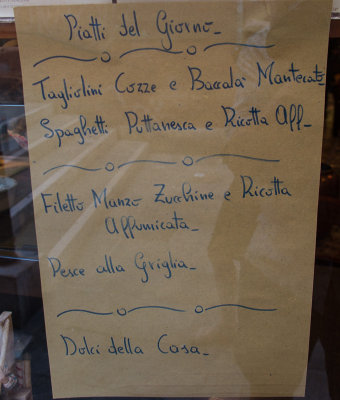 Piatti del Giorno_
Tagliolini Cozze e Baccalà Mantecato
Spaghetti Puttanesca e Ricotta Aff_
Filetto Manzo Zucchine e Ricotta
Affumicata_
Pesce alla Griglia_
Dolci della Casa_